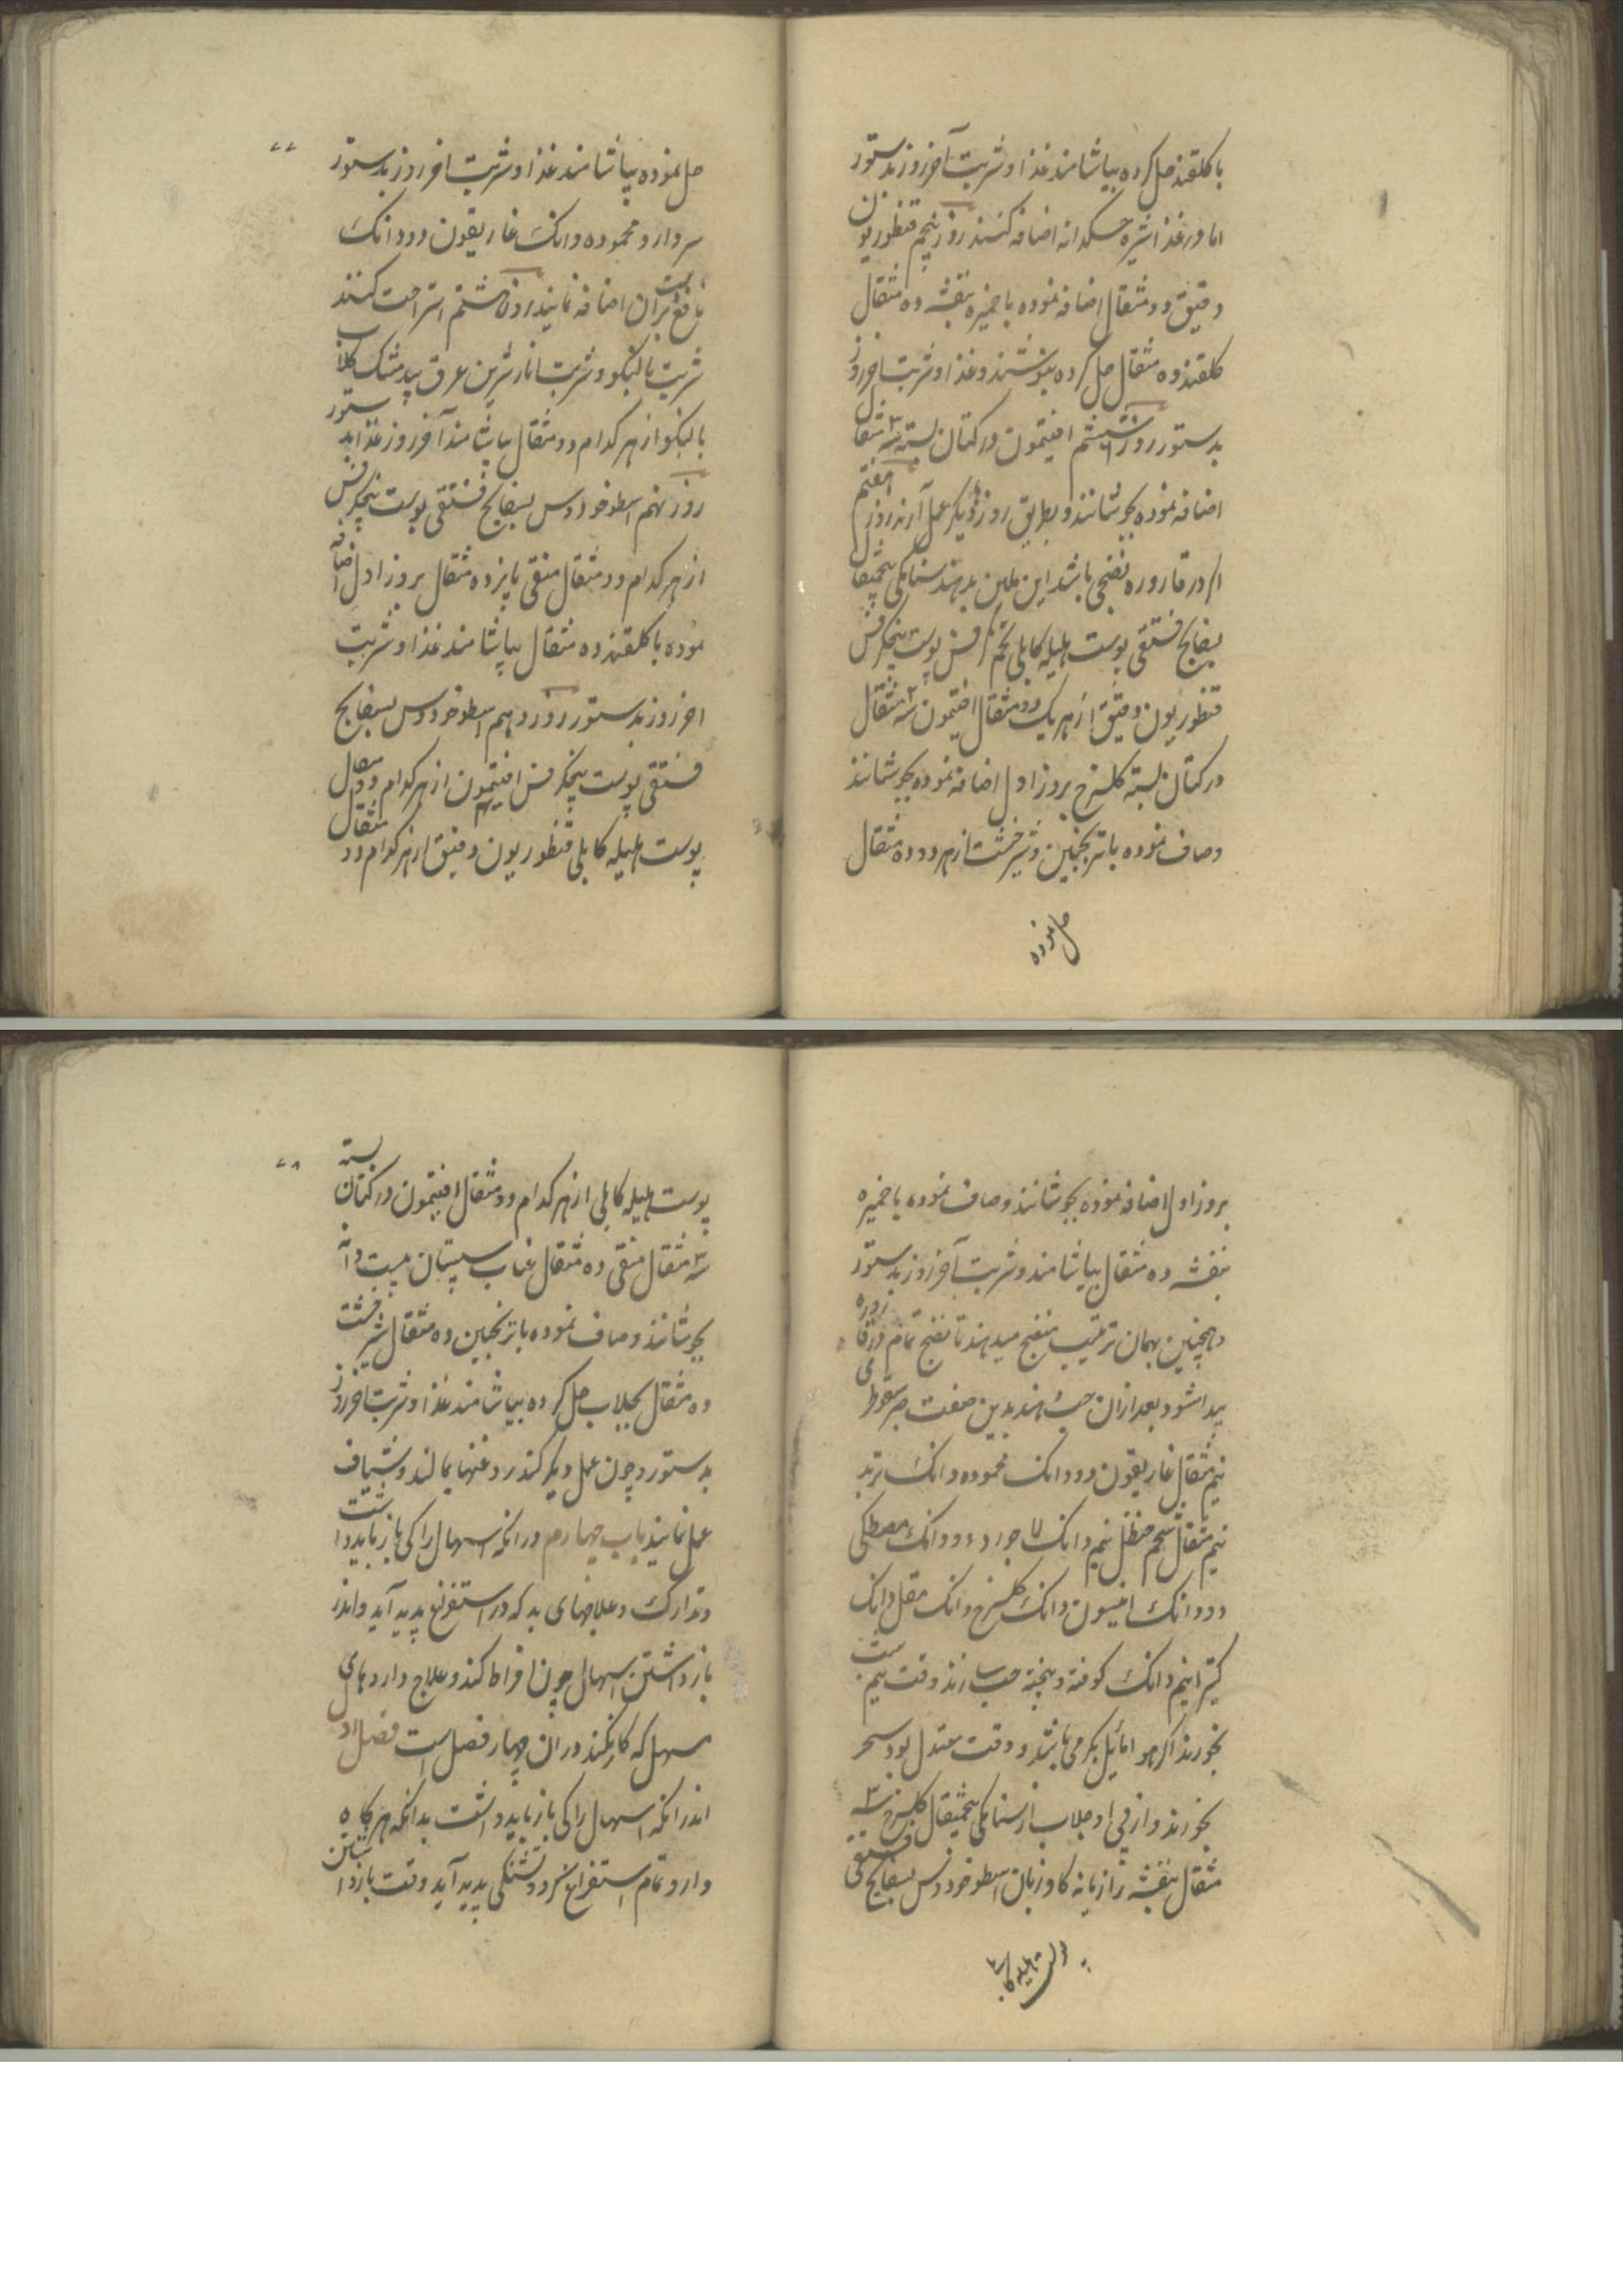 با گلقند حل کرده بیاشامند غذا و شربت آخر روز بدستور
اما در غذا شیره خسکدانه اضافه کنند روز پنجم قنطوریون
دقیق دو مثقال اضافه نموده با خمیره بنفشه ده مثقال
گلقند ده مثقال حل کرده بنوشند و غذا و شربت آخر روز
بدستور روز ششم افتیمون در کتان بسته سه مثقال
اضافه نموده بجوشانند و بطریق روزهای دیگر عمل آرند روز هفتم
اگر در قاروره نضجی باشد این ملین بدهند سنامکی پنجمثقال
بسفایج فستقی پوست هلیله کابلی تخم کرفس پوست بیخ کرفس
قنطوریون دقیق از هر یک دو مثقال افتیمون سه مثقال
در کتان بسته گلسرخ بروز اول اضافه نموده بجوشانند
و صاف نموده با ترنجبین و شیرخشت از هر دو ده مثقال
حل نموده
۷۷
حل نموده بیاشامند غذا و شربت آخر روز بدستور
سر دارو محموده دانک غاریقون دو دانک
نافع بران اضافه نمایند روز هشتم استراحت کنند
شربت بالنکو و شربت انار شیرین عرق بیدمشک کلاب
بالنکو از هر کدام دو مثقال بیاشامند آخر روز غذا بدستور
روز نهم اسطوخودوس بسفایج فستقی پوست بیخ کرفس
از هر کدام دو مثقال منقی پانزده مثقال بروز اول اضافه
نموده با گلقند ده مثقال بیاشامند غذا و شربت
آخر روز بدستور روز دهم اسطوخودوس بسفایج
فستقی پوست بیخ کرفس افتیمون از هر کدام دو مثقال
پوست هلیله کابلی قنطوریون دقیق از هر کدام دو مثقال
بروز اول اضافه نموده بجوشانند و صاف نموده با خمیره
بنفشه ده مثقال بیاشامند و شربت آخر روز بدستور
و همچنین بهمان ترتیب منضج میدهند تا نضج تمام در قاروره
پیدا شود بعد ازان حب دهند بدین صفت صبر سقوطری
نیم مثقال غاریقون دو دانک محموده دانک تربد
نیم مثقال شحم حنظل نیم دانک لاجورد دو دانک مصطکی
دو دانک انیسون دانک گلسرخ دانک مقل دانک
کتیرا نیم دانک کوفته و بیخته حب سازند وقت نیم شب
بخورند اگر هوا مایل بگرمی باشد و وقت معتدل بود سحر
بخورند و از پی او جلاب از سنامکی پنجمثقال گلسرخ سه
مثقال بنفشه رازیانه گاوزبان اسطوخودوس بسفایج فستقی
پوست هلیله کابلی
۷۸
پوست هلیله کابلی از هر کدام دو مثقال افتیمون در کتان بسته
سه مثقال منقی ده مثقال عناب سپستان بیست دانه
بجوشانند و صاف نموده با ترنجبین ده مثقال شیرخشت
ده مثقال بجلاب حل کرده بیاشامند غذا و شربت آخر روز
بدستور و چون عمل دیر کند روغنها بمالند و شیاف
عمل نمایند باب چهارم در انکه اسهال را کی باز باید داشت
و تدارک و علاجهای بد که در استفراغ پدید آید و اندر
باز داشتن اسهال چون افراط کند و علاج داروهای
مسهل که کار نکند و در ان چهار فصل است فصل اول
اندر انکه اسهال را کی باز باید داشت بدانکه هر کاه
دارو تمام استفراغ کرد و تشنگی پدید آید وقت باز داشتن